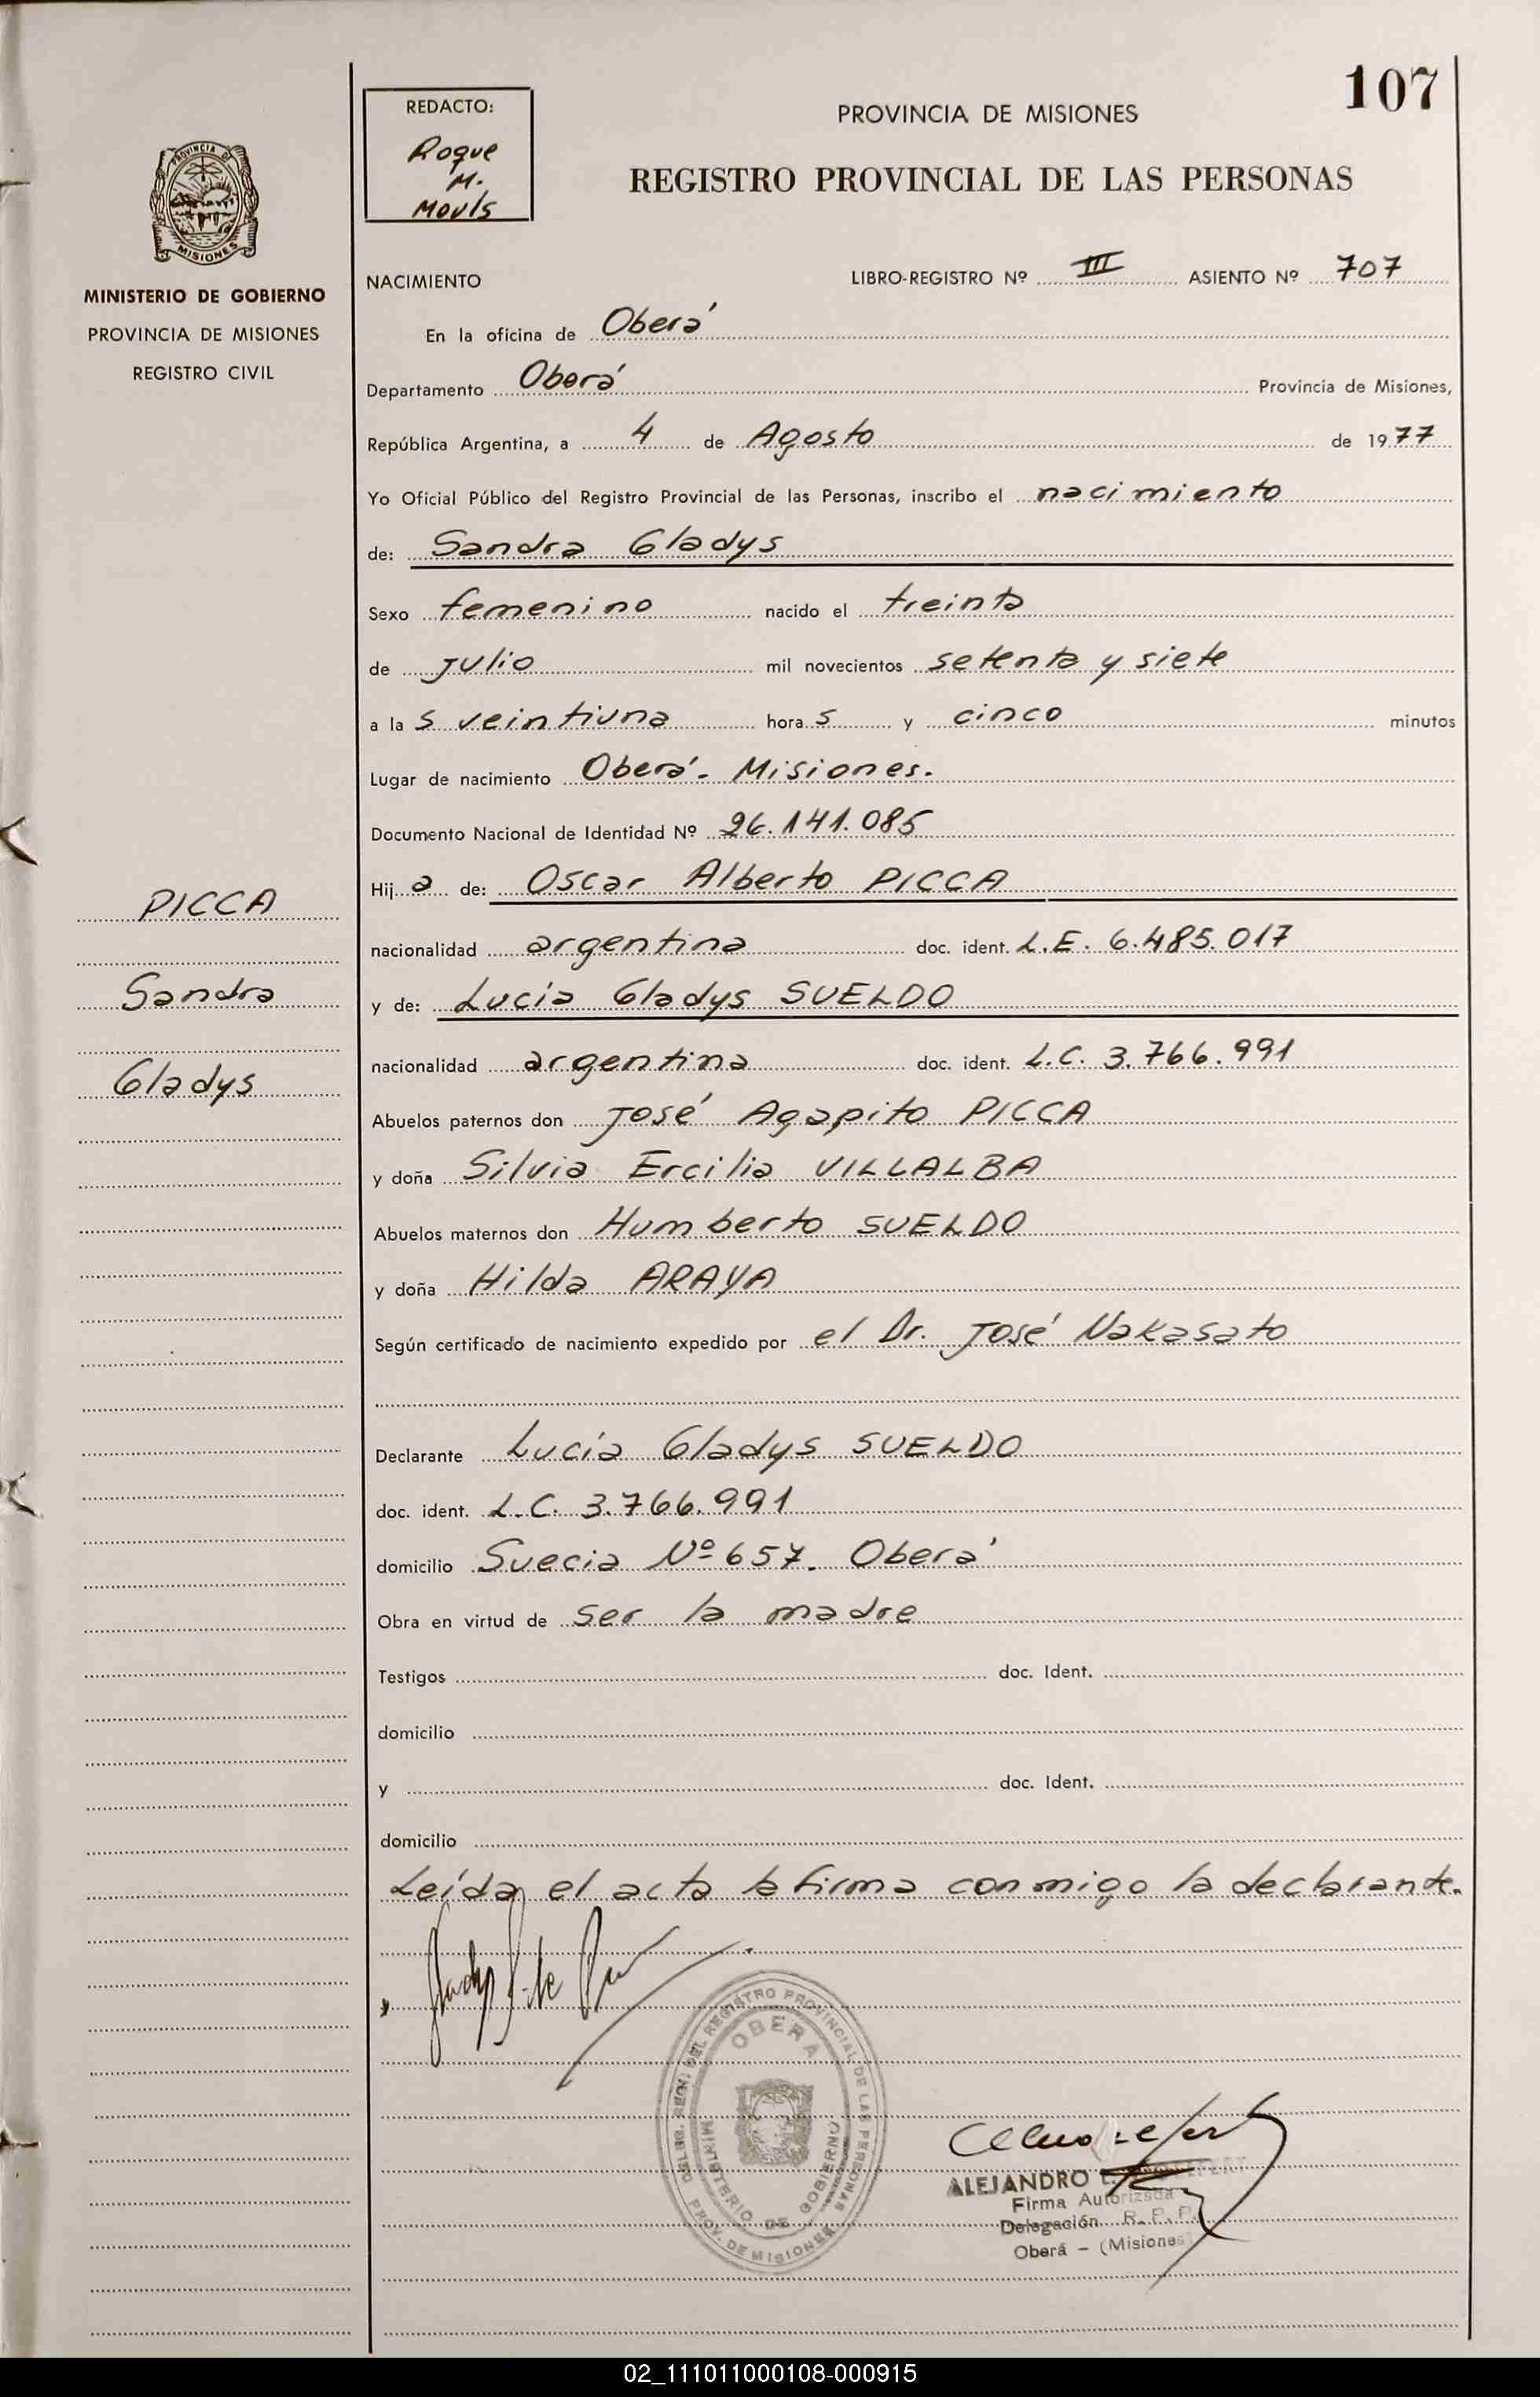 107
REDACTO:
Roque
M.
Mouls
PROVINCIA DE MISIONES
REGISTRO PROVINCIAL DE LAS PERSONAS
PROVINCIA DE
MISIONES
MINISTERIO DE GOBIERNO
PROVINCIA DE MISIONES
REGISTRO CIVIL
NACIMIENTO LIBRO-REGISTRO Nº III ASIENTO Nº 707
En la oficina de Oberá
Departamento Oberá Provincia de Misiones,
República Argentina, a 4 de Agosto de 1977
Yo Oficial Público del Registro Provincial de las Personas, inscribo el nacimiento
de: Sandra Gladys
Sexo femenino nacido el treinta
de julio mil novecientos setenta y siete
a las veintiuna horas y cinco minutos
Lugar de nacimiento Oberá - Misiones.
Documento Nacional de Identidad Nº 26.141.085
Hija de: Oscar Alberto PICCA
nacionalidad argentina doc. ident. L.E. 6.485.017
y de: Lucía Gladys SUELDO
nacionalidad argentina doc. ident. L.C. 3.766.991
Abuelos paternos don José Agapito PICCA
y doña Silvia Ercilia VILLALBA
Abuelos maternos don Humberto SUELDO
y doña Hilda ARAYA
Según certificado de nacimiento expedido por el Dr. José Nakasato
Declarante Lucía Gladys SUELDO
doc. ident. L.C. 3.766.991
domicilio Suecia Nº 657. Oberá
Obra en virtud de ser la madre
Testigos doc. Ident.
domicilio
y doc. Ident.
domicilio
Leída el acta la firma conmigo la declarante.
PICCA
Sandra
Gladys
REGISTRO PROVINCIAL DE LAS PERSONAS
OBERÁ
MINISTERIO DE GOBIERNO
PROV. DE MISIONES
ALEJANDRO
Firma Autorizada
Delegación R. P. P.
Oberá - (Misiones)
02_111011000108-000915